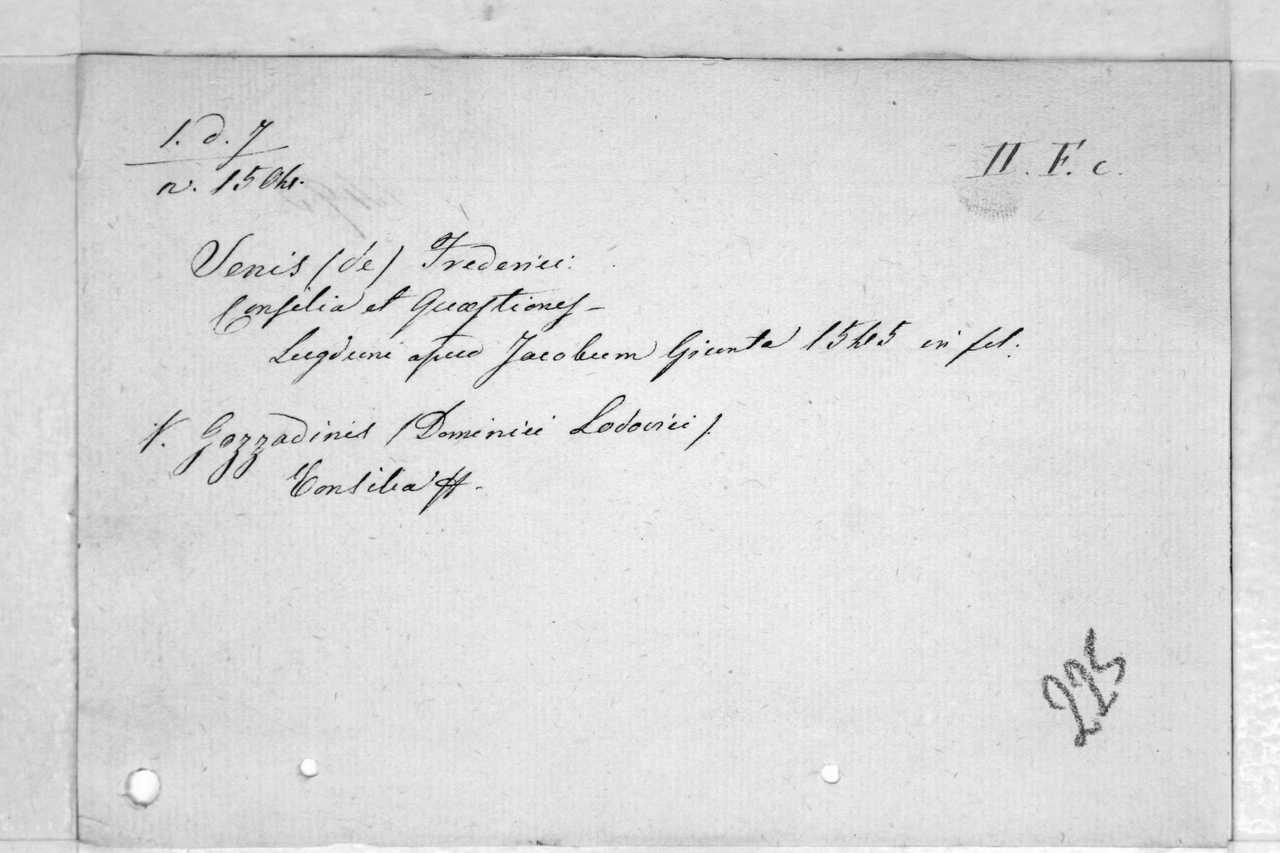 1. d. 7
n. 150
II. F. c.
Senis (de) Frederici:
Consilia et Quæstiones –
Lugduni apud Jacobum Giunta 1545 in fol.
V. Gozzadinis (Dominici Lodovici).
Consilia
225